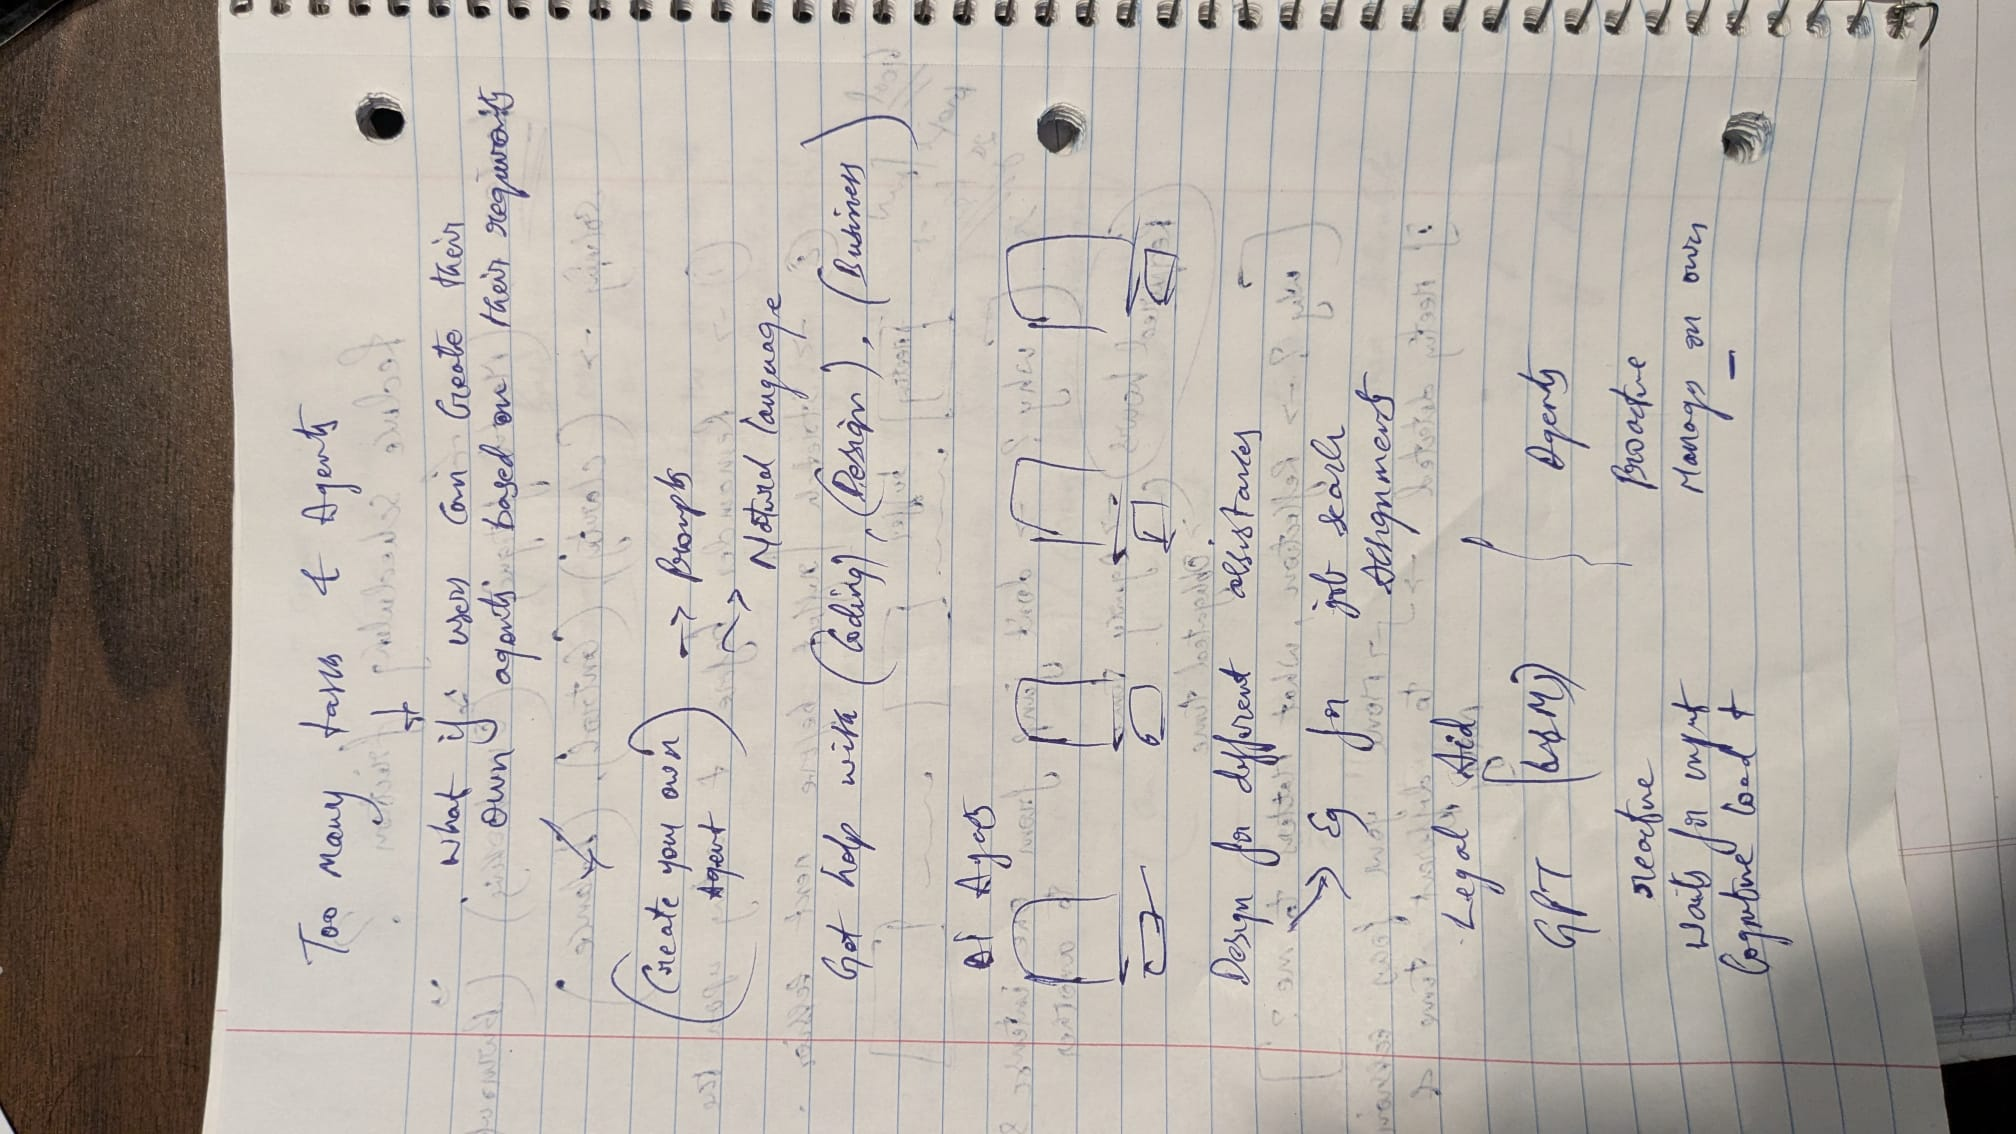 Too many tasks & Agents
↓
What if users can create their
own agents based on their requirements
(Create your own Agent) → Prompts
→ Natural language
Get help with (Coding), (Design), (Business)
AI Agents
Design for different assistances
→ Eg for job search
Assignments
Legal Aid
GPT (LLM) Agents
reactive Proactive
Waits for input Manages on own
Cognitive load +